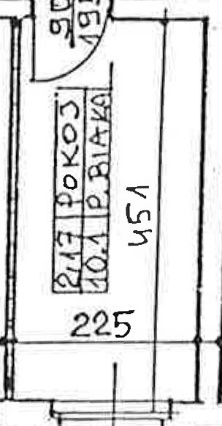 90
195
2.17 POKÓJ
10.1 P. BIAŁA
451
225